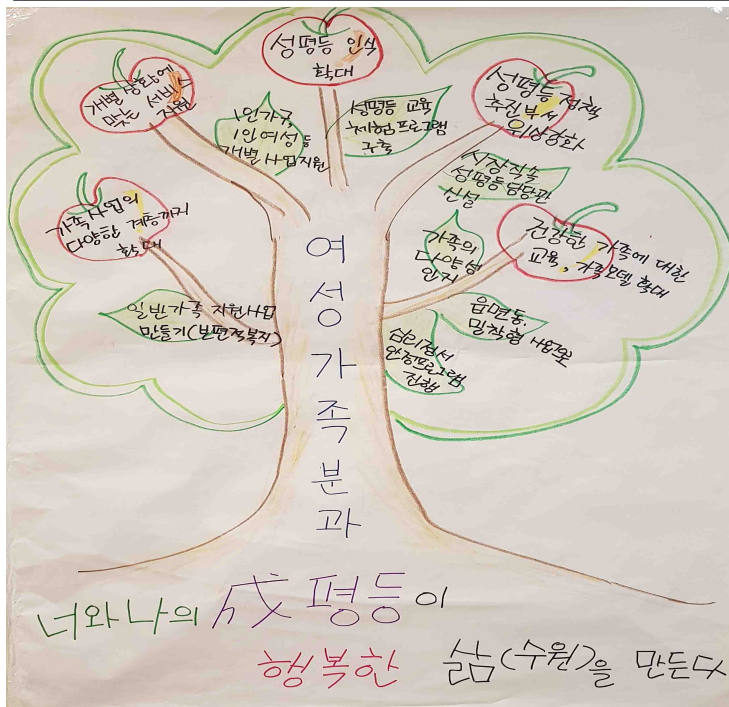 성평등 인식
확대
개별 상황에
맞는 서비스
지원
1인가구,
1인여성 등
개별사업지원
성평등 교육
체험프로그램
구축
성평등 정책
추진부서
위상강화
시장직속
성평등담당관
신설
가족사업의
다양한 계층까지
확대
일반가족 지원사업
만들기(보편적복지)
가족의
다양성
인지
건강한 가족에 대한
교육, 가족모델 확대
읍면동.
밀착형 사업으로
심리정서
안정프로그램
진행
여
성
가
족
분
과
너와 나의 평등이
행복한 삶(수원)을 만든다